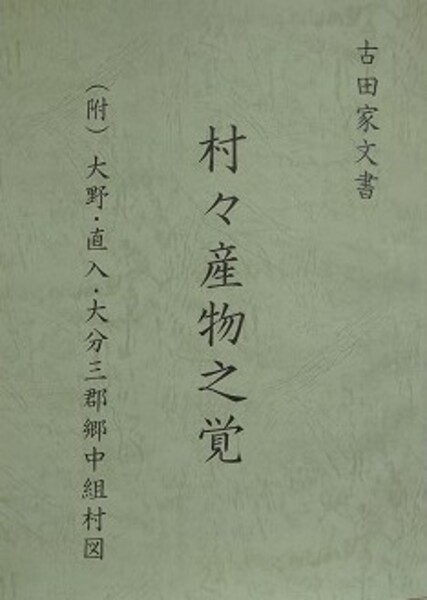 古田家文書
村々産物之覚
（附）大野・直入・大分三郡郷中組村図